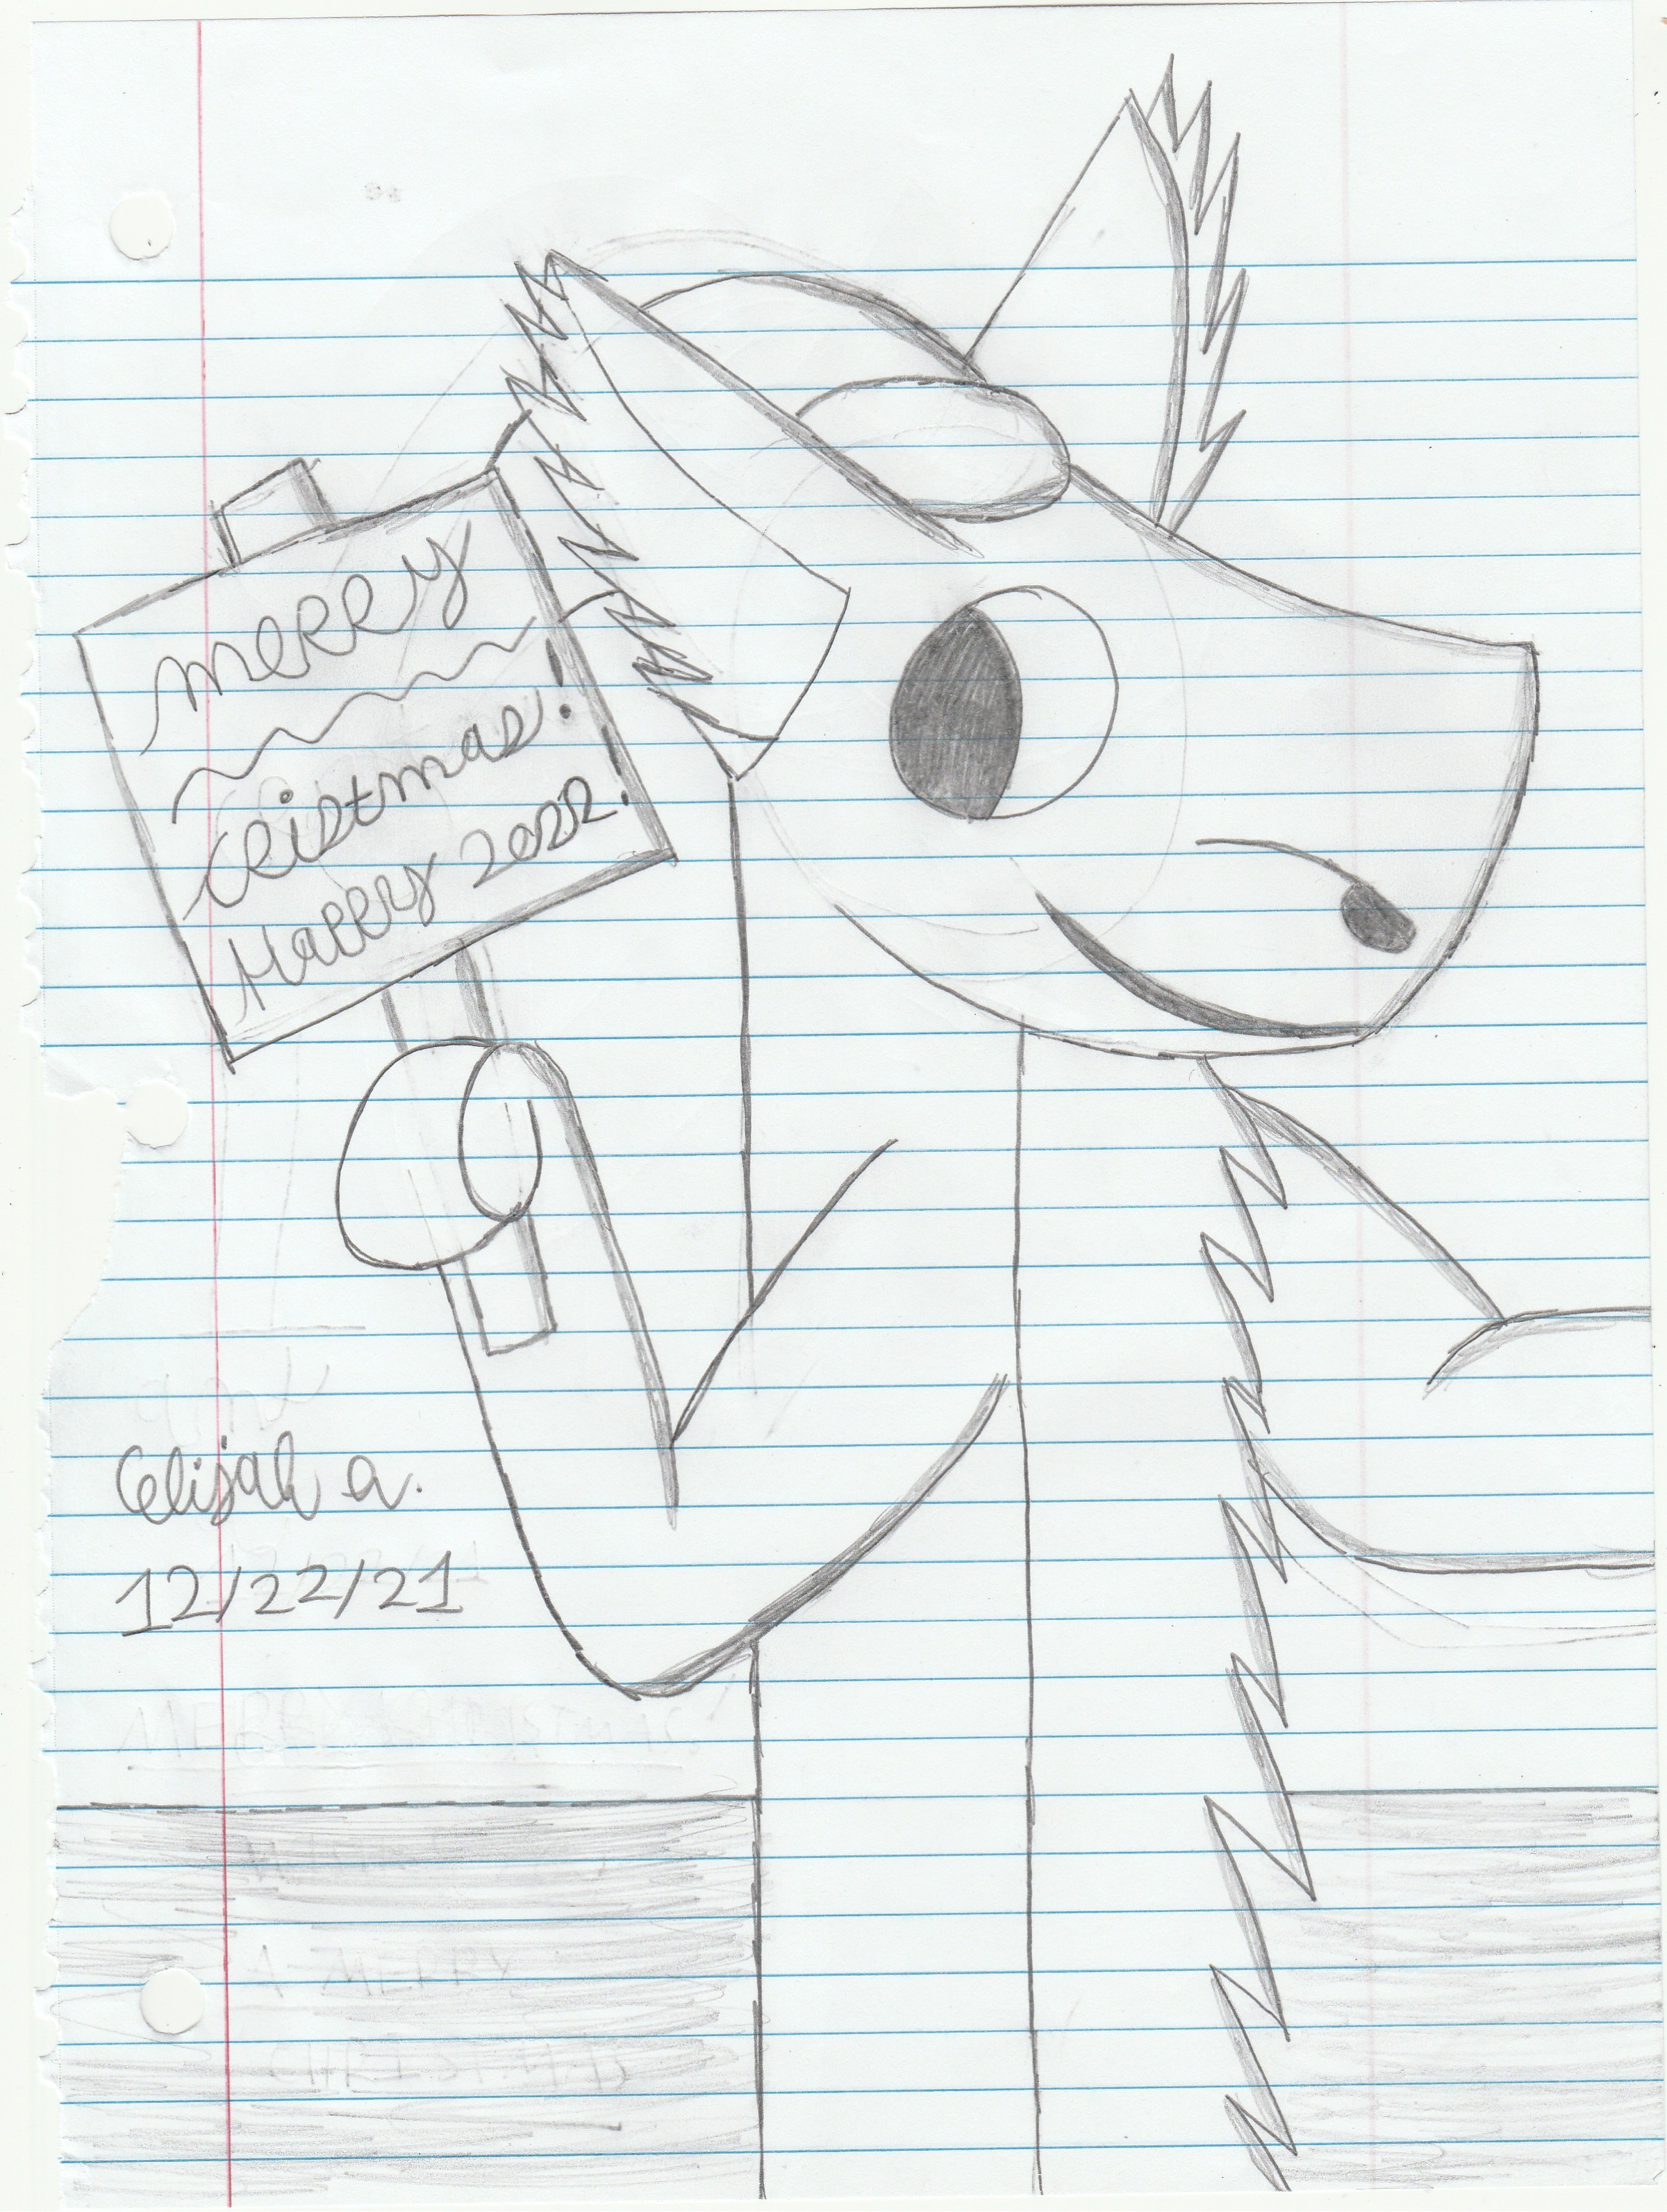 merry
Cristmas!
Happy 2022!
Elijah a.
12/22/21